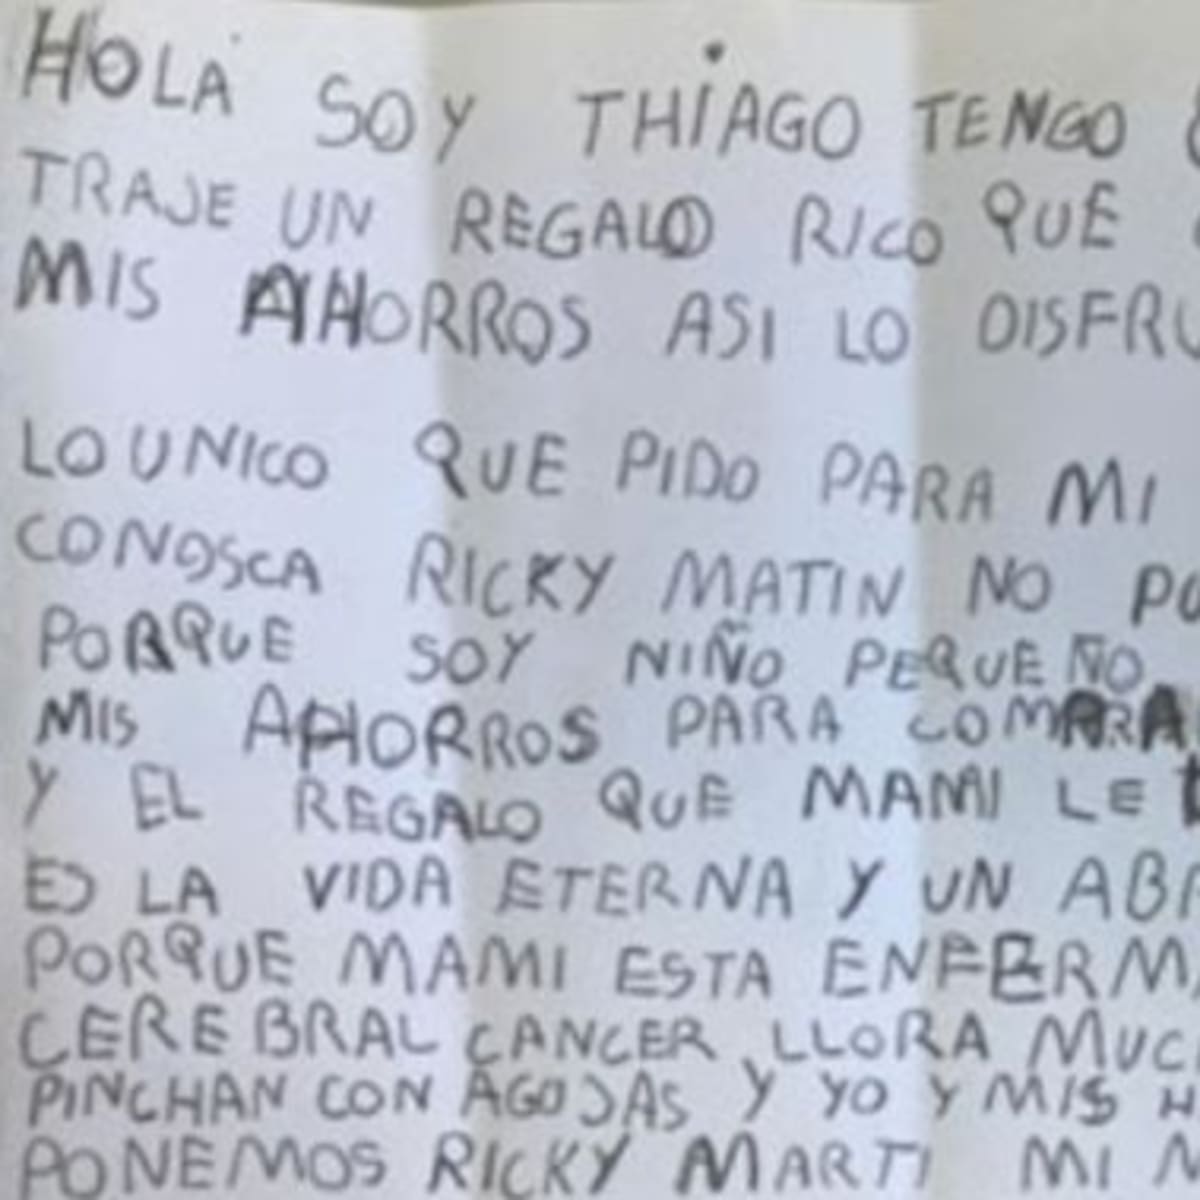 HOLA SOY THIAGO TENGO
TRAJE UN REGALO RICO QUE
MIS AHORROS ASI LO DISFRU
LO UNICO QUE PIDO PARA MI
CONOSCA RICKY MATIN NO PO
PORQUE SOY NIÑO PEQUEÑO
MIS AHORROS PARA COMARA
Y EL REGALO QUE MAMI LE
ES LA VIDA ETERNA Y UN ABR
PORQUE MAMI ESTA ENFERMA
CEREBRAL CANCER, LLORA MUC
PINCHAN CON AGOJAS Y YO Y MIS H
PONEMOS RICKY MARTI MI M